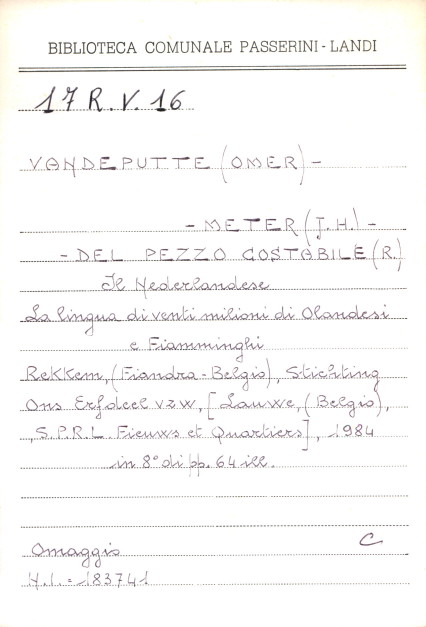 BIBLIOTECA COMUNALE PASSERINI - LANDI
17 R. V. 16
VANDEPUTTE (OMER) -
- METER (J. H.) -
- DEL PEZZO COSTABILE (R.)
Il Nederlandese
La lingua di venti milioni di Olandesi
e Fiamminghi
Rekkem, (Fiandra - Belgio), Stichting
Ons Erfdeel vzw, [Lauwe, (Belgio),
S.P.R.L. Fieuws et Quartiers], 1984
in 8° di pp. 64 ill.
C
Omaggio
N.I. = 183741